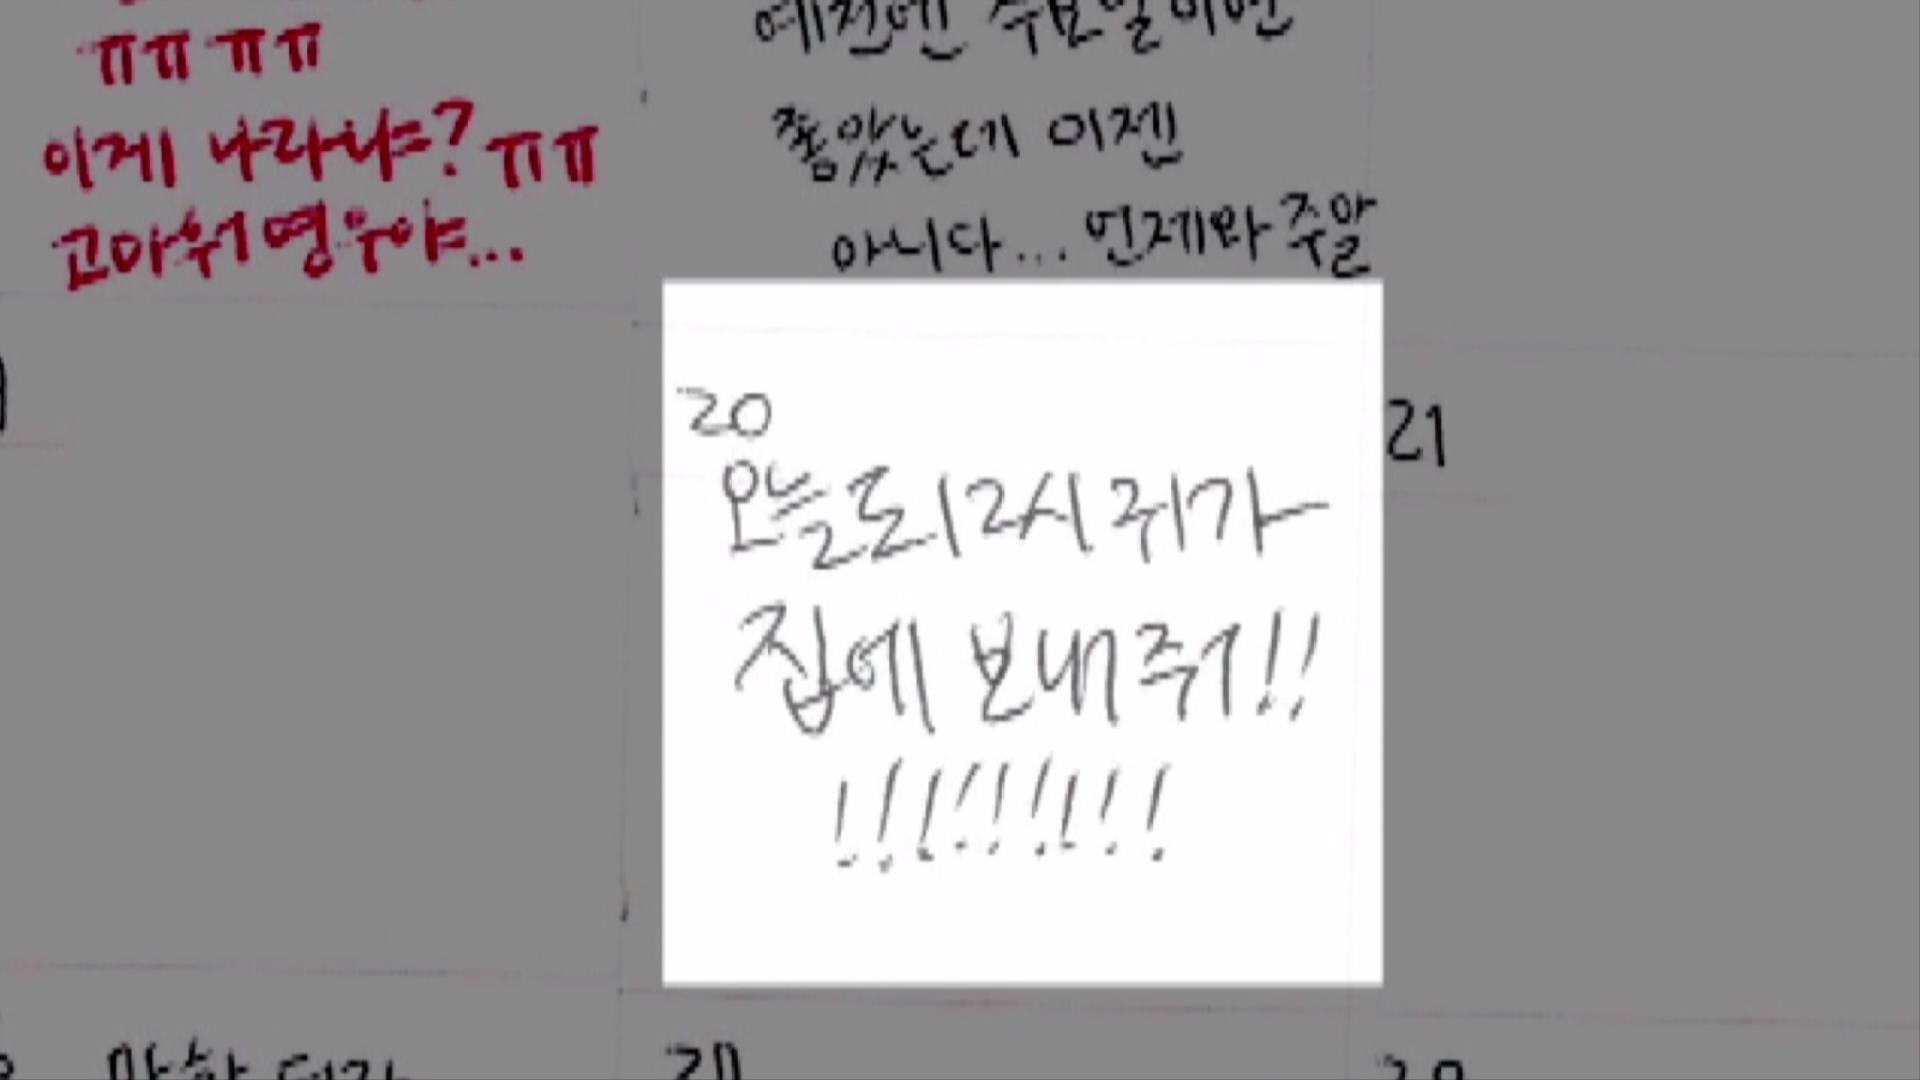 ㅠㅠ ㅠㅠ
이게 나라냐? ㅠㅠ
고마워 영우야...
예전엔 주요일이면
좋았는데 이젠
아니다... 언제와 주말
20
오늘도 12시 귀가
집에 보내줘!!
!!!!!!!!!
21